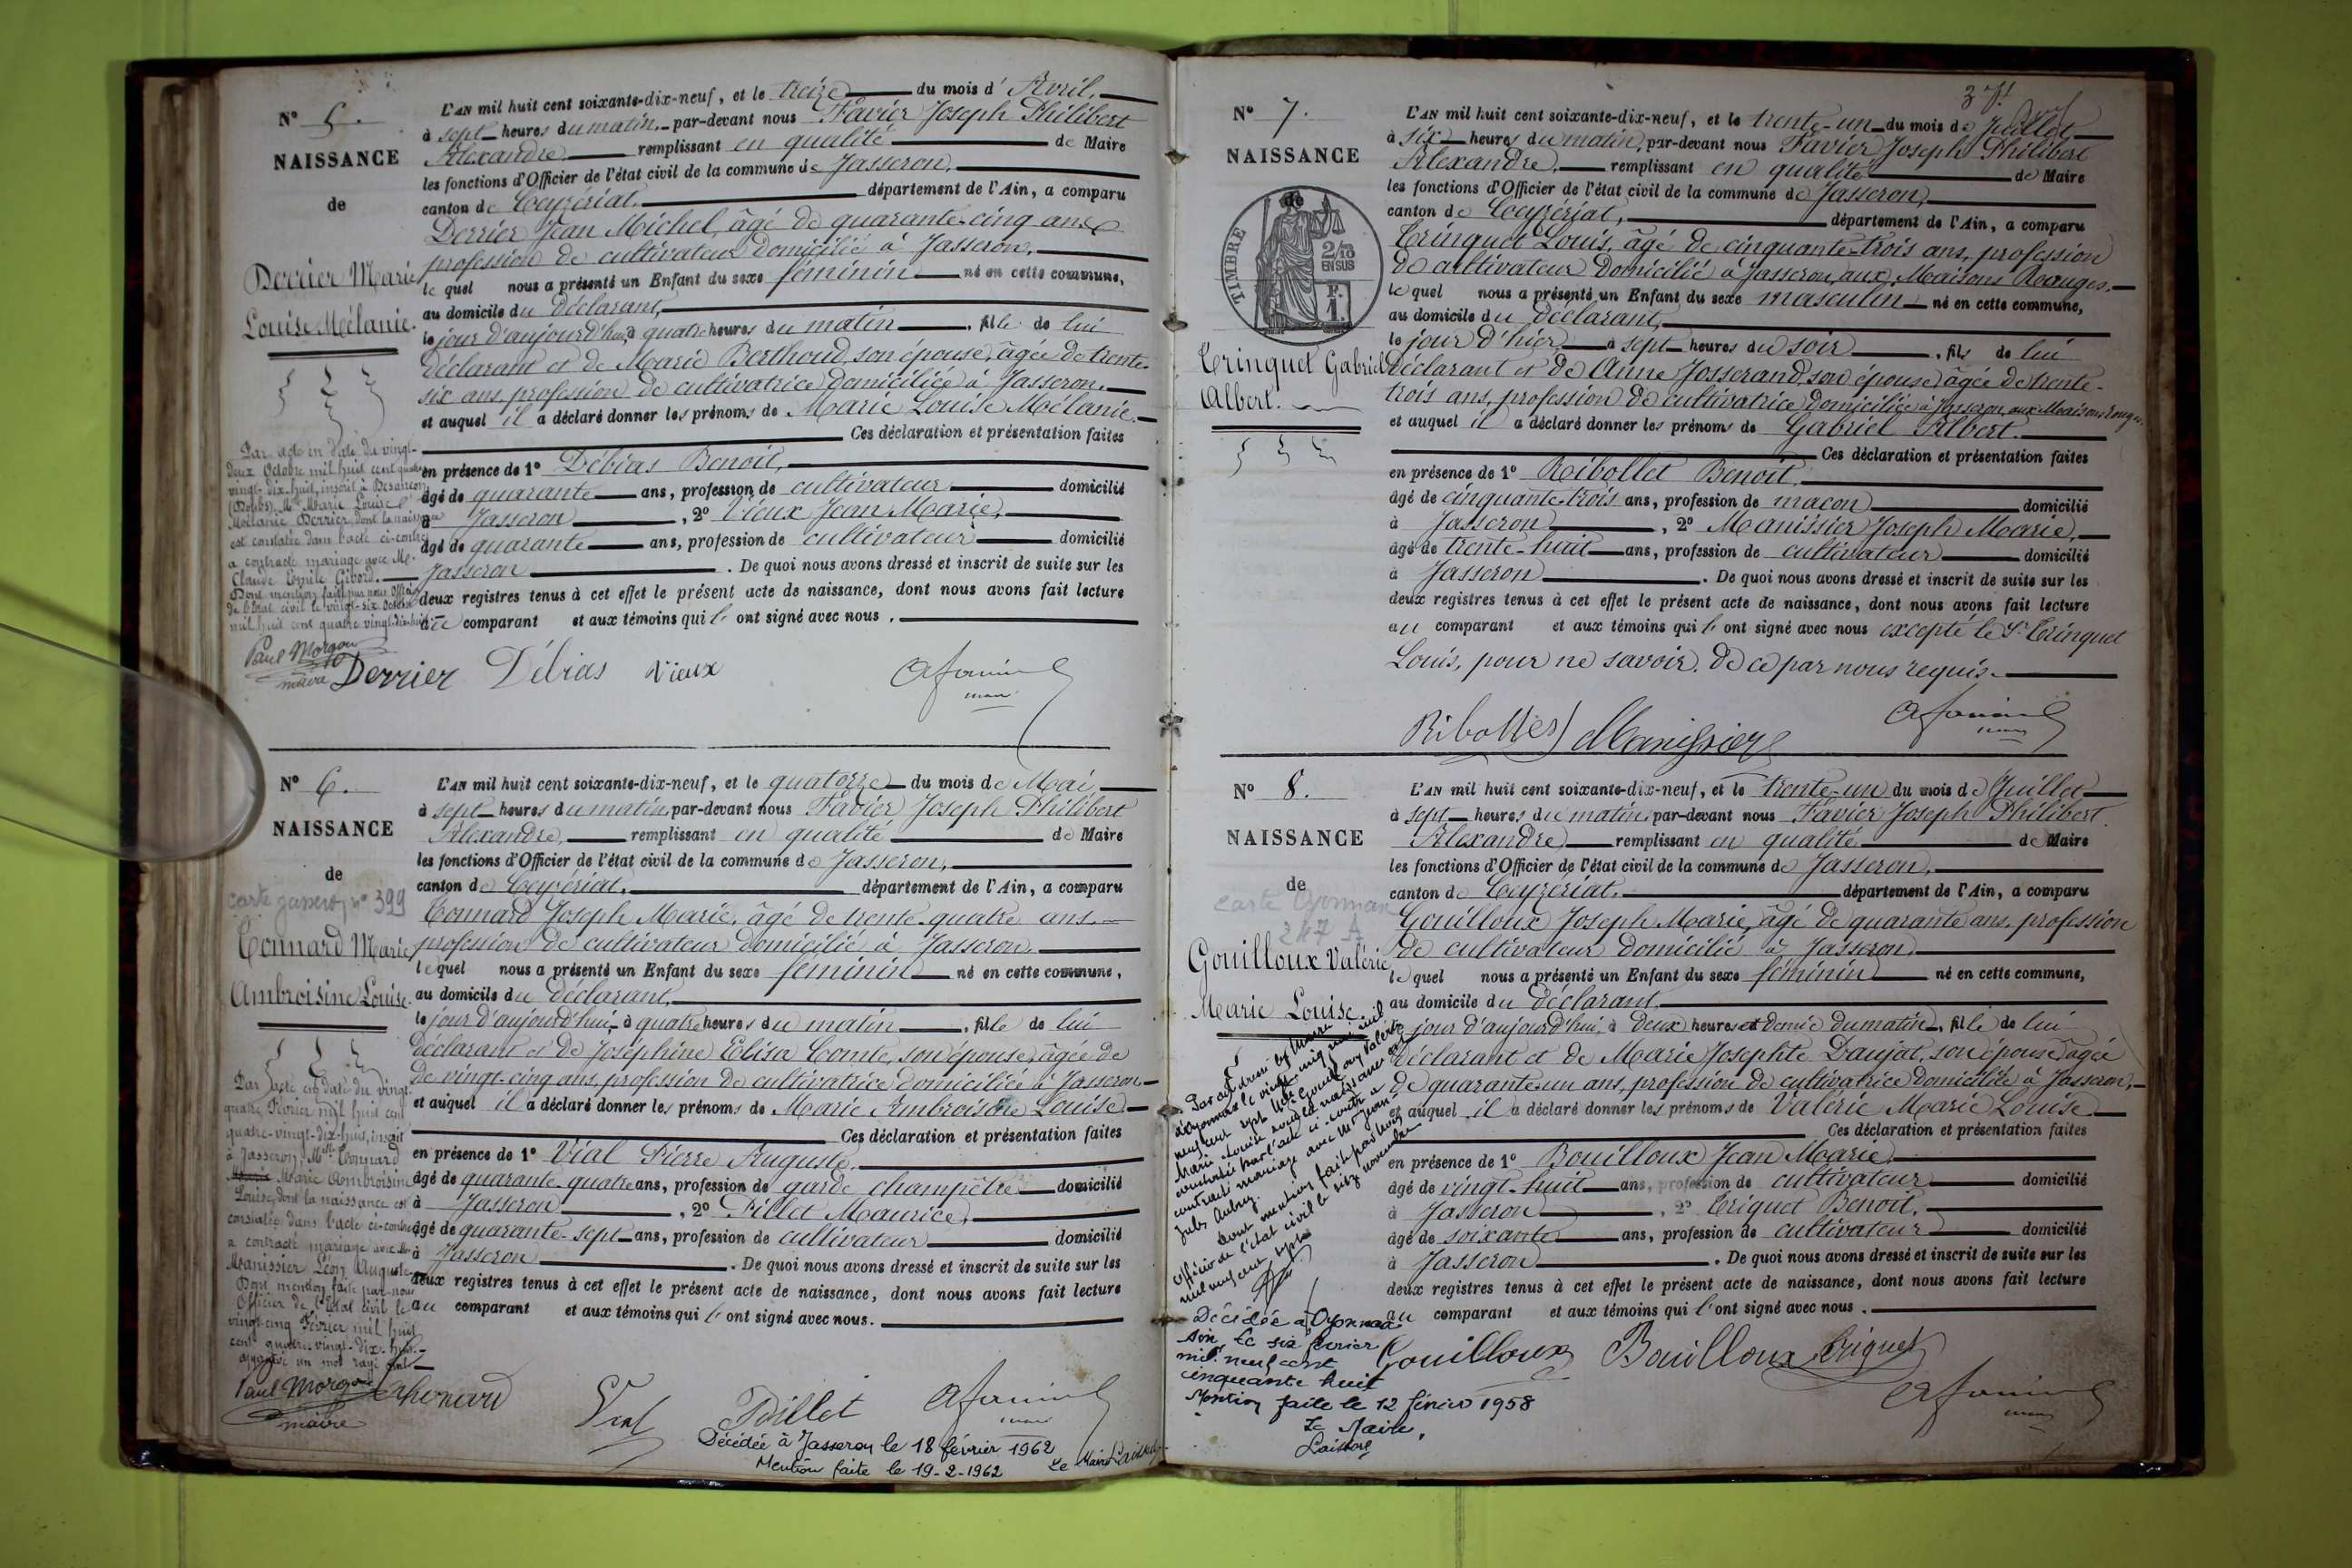 N° 5.
NAISSANCE
de
Derrier Marie
Louise Mélanie.
L'AN mil huit cent soixante-dix-neuf, et le treize du mois d'Avril,
à sept heures du matin, par-devant nous Favier Joseph Philibert
Alexandre remplissant en qualité de Maire
les fonctions d'Officier de l'état civil de la commune de Jasseron,
canton de Ceyzériat, département de l'Ain, a comparu
Derrier Jean Michel, âgé de quarante-cinq ans
profession de cultivateur domicilié à Jasseron,
lequel nous a présenté un Enfant du sexe féminin né en cette commune,
au domicile du déclarant,
le jour d'aujourd'hui, à quatre heures du matin, fille de lui
déclarant et de Marie Berthoud, son épouse, âgée de trente-
six ans, profession de cultivatrice domiciliée à Jasseron,
et auquel il a déclaré donner les prénoms de Marie Louise Mélanie.
Ces déclaration et présentation faites
en présence de 1° Débias Benoit,
âgé de quarante ans, profession de cultivateur domicilié
à Jasseron, 2° Vieux Jean Marie,
âgé de quarante ans, profession de cultivateur domicilié
Jasseron. De quoi nous avons dressé et inscrit de suite sur les
deux registres tenus à cet effet le présent acte de naissance, dont nous avons fait lecture
au comparant et aux témoins qui l'ont signé avec nous.
Par acte en date du vingt-
deux Octobre mil huit cent quatre
vingt-dix-huit, inscrit à Besançon
(Doubs), Mlle Marie Louise
Mélanie Derrier dont la naissance
est constatée dans l'acte ci-contre
a contracté mariage avec Mr.
Claude Emile Girard.
Dont mention faite par nous Officier
de l'Etat civil le vingt-six Octobre
mil huit cent quatre vingt-dix-huit
Paul Morgon
maire
Derrier Débias Vieux
N° 6.
NAISSANCE
de
carte Jasseron n° 399
Connard Marie
Ambroisine Louise.
L'AN mil huit cent soixante-dix-neuf, et le quatorze du mois de Mai,
à sept heures du matin, par-devant nous Favier Joseph Philibert
Alexandre, remplissant en qualité de Maire
les fonctions d'Officier de l'état civil de la commune de Jasseron,
canton de Ceyzériat, département de l'Ain, a comparu
Connard Joseph Marie, âgé de trente-quatre ans,
profession de cultivateur domicilié à Jasseron,
lequel nous a présenté un Enfant du sexe féminin né en cette commune,
au domicile du déclarant,
le jour d'aujourd'hui, à quatre heures du matin, fille de lui
déclarant et de Joséphine Elisa Comte, son épouse, âgée de
de vingt-cinq ans, profession de cultivatrice domiciliée à Jasseron
et auquel il a déclaré donner les prénoms de Marie Ambroisine Louise
Ces déclaration et présentation faites
en présence de 1° Vial Pierre Auguste,
âgé de quarante-quatre ans, profession de garde champêtre domicilié
à Jasseron, 2° Pillet Maurice,
âgé de quarante-sept ans, profession de cultivateur domicilié
à Jasseron. De quoi nous avons dressé et inscrit de suite sur les
deux registres tenus à cet effet le présent acte de naissance, dont nous avons fait lecture
au comparant et aux témoins qui l'ont signé avec nous.
Par acte en date du vingt-
quatre Février mil huit cent
quatre-vingt-dix-huit, inscrit
à Jasseron, Mlle Connard
Marie Ambroisine
Louise, dont la naissance est
constatée dans l'acte ci-contre
a contracté mariage avec Mr
Manissier Léon Auguste
Dont mention faite par nous
Officier de l'Etat civil le
vingt-cinq Février mil huit
cent quatre-vingt-dix-huit.
approuvé un mot rayé nul
Paul Morgon
maire
Vial Pillet
Décédée à Jasseron le 18 février 1962
Mention faite le 19-2-1962 Le Maire
N° 7.
NAISSANCE
de
TIMBRE
2/10
EN SUS
F.
1.
Trinquet Gabriel
Albert.
L'AN mil huit cent soixante-dix-neuf, et le trente-un du mois de Juillet
à six heures du matin, par-devant nous Favier Joseph Philibert
Alexandre, remplissant en qualité de Maire
les fonctions d'Officier de l'état civil de la commune de Jasseron,
canton de Ceyzériat, département de l'Ain, a comparu
Trinquet Louis, âgé de cinquante-trois ans, profession
de cultivateur domicilié à Jasseron, aux Maisons Rouges,
lequel nous a présenté un Enfant du sexe masculin né en cette commune,
au domicile du déclarant,
le jour d'hier à sept heures du soir, fils de lui
déclarant et de Anne Josserand, son épouse, âgée de trente-
trois ans, profession de cultivatrice domiciliée à Jasseron, aux Maisons Rouges
et auquel il a déclaré donner les prénoms de Gabriel Albert.
Ces déclaration et présentation faites
en présence de 1° Ribollet Benoit,
âgé de cinquante-trois ans, profession de maçon domicilié
à Jasseron, 2° Manissier Joseph Marie,
âgé de trente-huit ans, profession de cultivateur domicilié
à Jasseron. De quoi nous avons dressé et inscrit de suite sur les
deux registres tenus à cet effet le présent acte de naissance, dont nous avons fait lecture
au comparant et aux témoins qui l'ont signé avec nous excepté le Sr Trinquet
Louis, pour ne savoir, de ce par nous requis.
Ribollet Manissier
N° 8.
NAISSANCE
de
carte Oyonnax
247 A
Gouilloux Valérie
Marie Louise.
L'AN mil huit cent soixante-dix-neuf, et le trente-un du mois de Juillet
à sept heures du matin, par-devant nous Favier Joseph Philibert
Alexandre remplissant en qualité de Maire
les fonctions d'Officier de l'état civil de la commune de Jasseron,
canton de Ceyzériat, département de l'Ain, a comparu
Gouilloux Joseph Marie, âgé de quarante ans, profession
de cultivateur domicilié à Jasseron,
lequel nous a présenté un Enfant du sexe féminin né en cette commune,
au domicile du déclarant,
le jour d'aujourd'hui, à deux heures et demie du matin, fille de lui
déclarant et de Marie Josephte Daujat, son épouse âgée
de quarante-un ans, profession de cultivatrice domiciliée à Jasseron,
et auquel il a déclaré donner les prénoms de Valérie Marie Louise.
Ces déclaration et présentation faites
en présence de 1° Bouilloux Jean Marie,
âgé de vingt-huit ans, profession de cultivateur domicilié
à Jasseron, 2° Triquet Benoit,
âgé de soixante ans, profession de cultivateur domicilié
à Jasseron. De quoi nous avons dressé et inscrit de suite sur les
deux registres tenus à cet effet le présent acte de naissance, dont nous avons fait lecture
au comparant et aux témoins qui l'ont signé avec nous.
Par acte dressé
d'Oyonnax le vingt-cinq mil
neuf cent sept Mlle Gouilloux Valérie
Marie-Louise dont la naissance est
constatée par l'acte ci-contre a
contracté mariage avec Mr Jean-
Jules
Dont mention faite par nous
Officier de l'état civil le six novembre
mil neuf cent sept
Décédée à Oyonnax
Ain le six février
mil neuf cent
cinquante huit
Mention faite le 12 février 1958
Le Maire,
Gouilloux Bouilloux Triquet